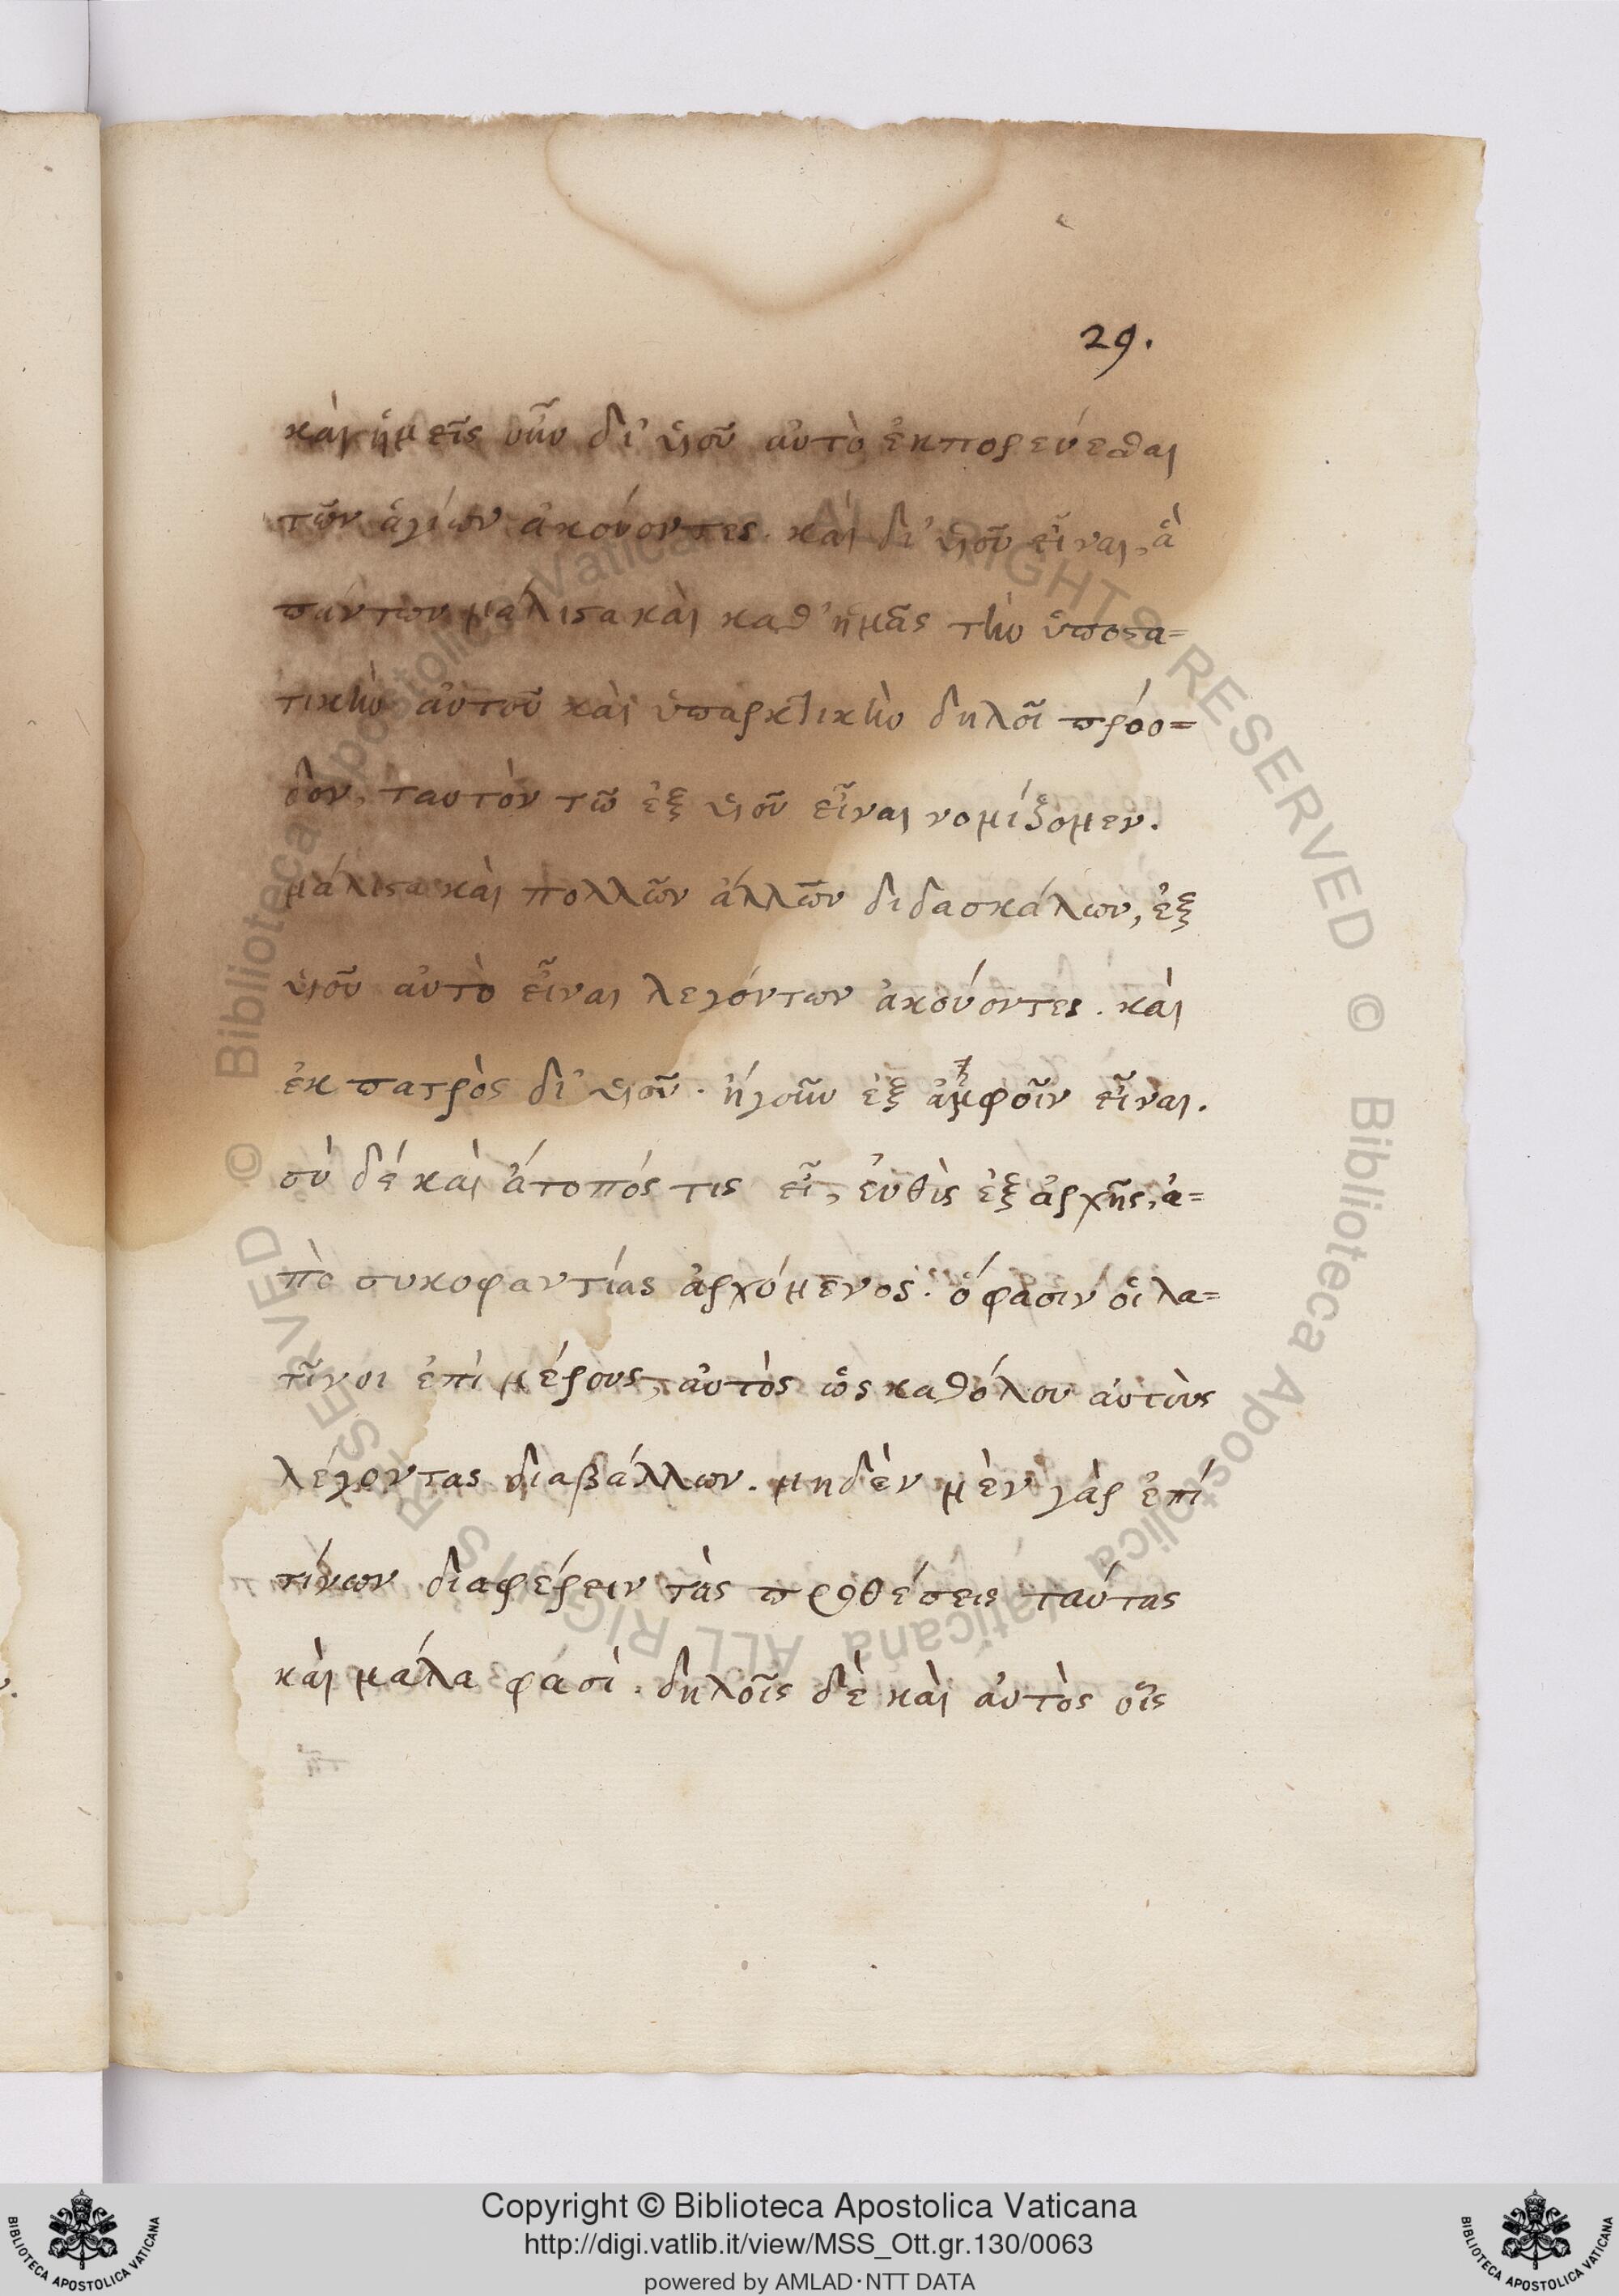 29.
καὶ ἡμεῖς οὖν δι' υἱοῦ αὐτὸ ἐκπορεύεσθαι
τῶν ἁγίων ἀκούοντες. καὶ δι' υἱοῦ εἶναι, ἃ
πάντων μάλιστα καὶ καθ' ἡμᾶς τὴν ὑποστα=
τικὴν αὐτοῦ καὶ ὑπαρκτικὴν δηλοῖ πρόο=
δον, ταυτὸν τῶ ἐξ υἱοῦ εἶναι νομίζομεν.
μάλιστα καὶ πολλῶν ἄλλων διδασκάλων, ἐξ
υἱοῦ αὐτὸ εἶναι λεγόντων ἀκούοντες. καὶ
ἐκ πατρὸς δι' υἱοῦ. ἤγουν ἐξ ἀμφοῖν εἶναι.
σὺ δὲ καὶ ἄτοπός τις εἶ, εὐθὶς ἐξ ἀρχῆς, ἀ=
πὸ συκοφαντίας ἀρχόμενος. ὅ φασιν οἱ λα=
τῖνοι ἐπὶ μέρους, αὐτὸς ὡς καθόλου αὐτοὺς
λέγοντας διαβάλλων. μηδὲν μὲν γὰρ ἐπί
τίνων διαφέρειν τὰς προθέσεις ταύτας
καὶ μάλα φασὶ. δηλοῖς δὲ καὶ αὐτὸς οἷς
Copyright © Biblioteca Apostolica Vaticana
http://digi.vatlib.it/view/MSS_Ott.gr.130/0063
powered by AMLAD·NTT DATA
© Biblioteca Apostolica Vaticana ALL RIGHTS RESERVED © Biblioteca Apostolica Vaticana ALL RIGHTS RESERVED
BIBLIOTECA APOSTOLICA VATICANA
BIBLIOTECA APOSTOLICA VATICANA